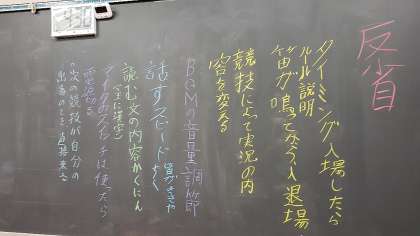 反省
タイミング 入場したら
ルール説明
笛が鳴ってから入退場
競技によって実況の内
容を変える
BGMの音量調節
話すスピード
読む文の内容かくにん
マイクのスイッチは使ったら
電源切る
次の競技が自分の
出番のとき